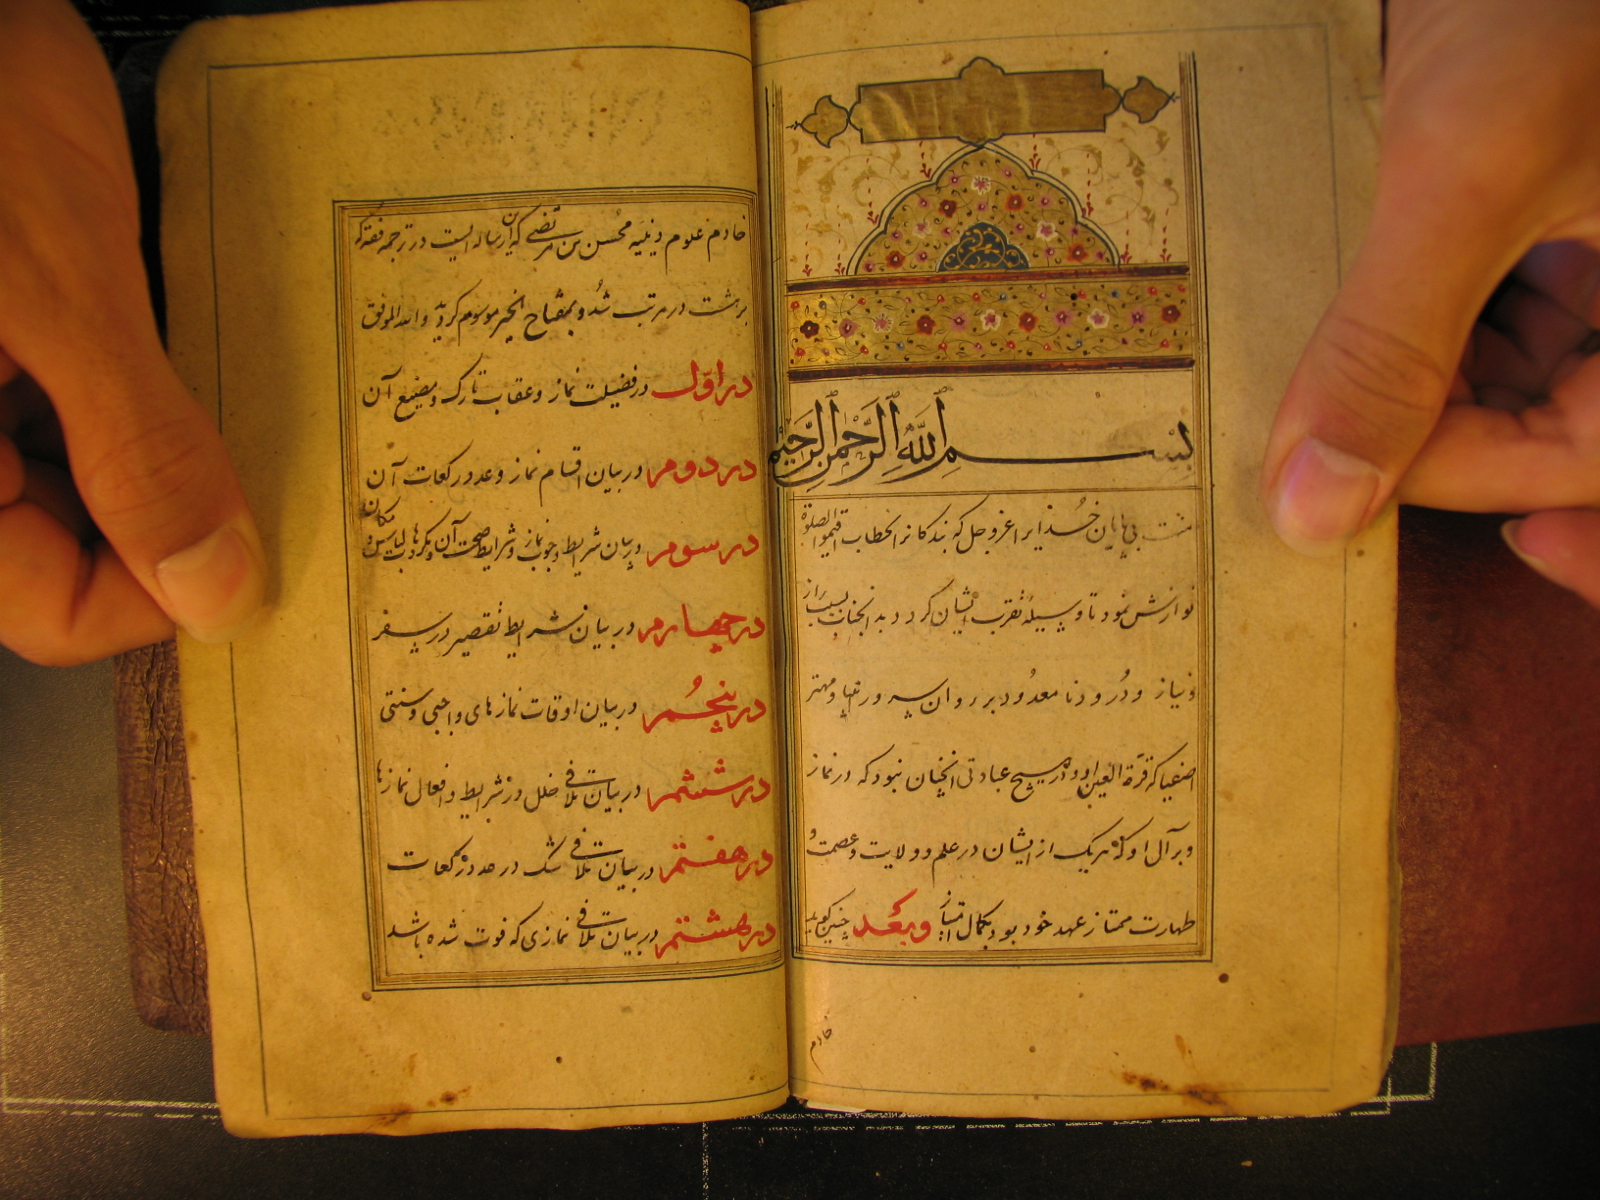 بسم الله الرحمن الرحیم
منت بی پایان خدایرا عز و جل که بندکانرا بخطاب اقیموا الصلوة
نوازش نمود تا وسیلهٔ تقرب ایشان کردد بدانجناب بسبب راز
و نیاز و درود نامعدود بر روان سرور انبیا و مهتر
اصفیا که قرة العین او در هیچ عبادتی آنچنان نبود که در نماز
و بر آل او که هر یک از ایشان در علم و ولایت و عصمت و
طهارت ممتاز عهد خود بود بکمال امتیاز وبعد چنین کوید
خادم
خادم علوم دینیه محسن بن مرتضی که این رساله ایست در ترجمه فقه که
بر هشت در مرتب شد و بمفتاح الخیر موسوم کردید والله الموفق
در اول در فضیلت نماز و عقاب تارک و مضیع آن
در دوم در بیان اقسام نماز و عدد رکعات آن
در سوم در بیان شرایط وجوب نماز و شرایط صحت آن و مکروهات لباس و مکان
در چهارم در بیان شرایط تقصیر در سفر
در پنجم در بیان اوقات نمازهای واجبی و سنتی
در ششم در بیان تلافی خلل در شرایط و افعال نمازها
در هفتم در بیان تلافی شک در عدد رکعات
در هشتم در بیان تلافی نمازی که فوت شده باشد